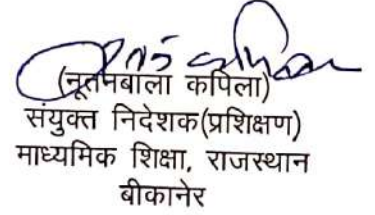 (नूतनबाला कपिला)
संयुक्त निदेशक(प्रशिक्षण)
माध्यमिक शिक्षा, राजस्थान
बीकानेर